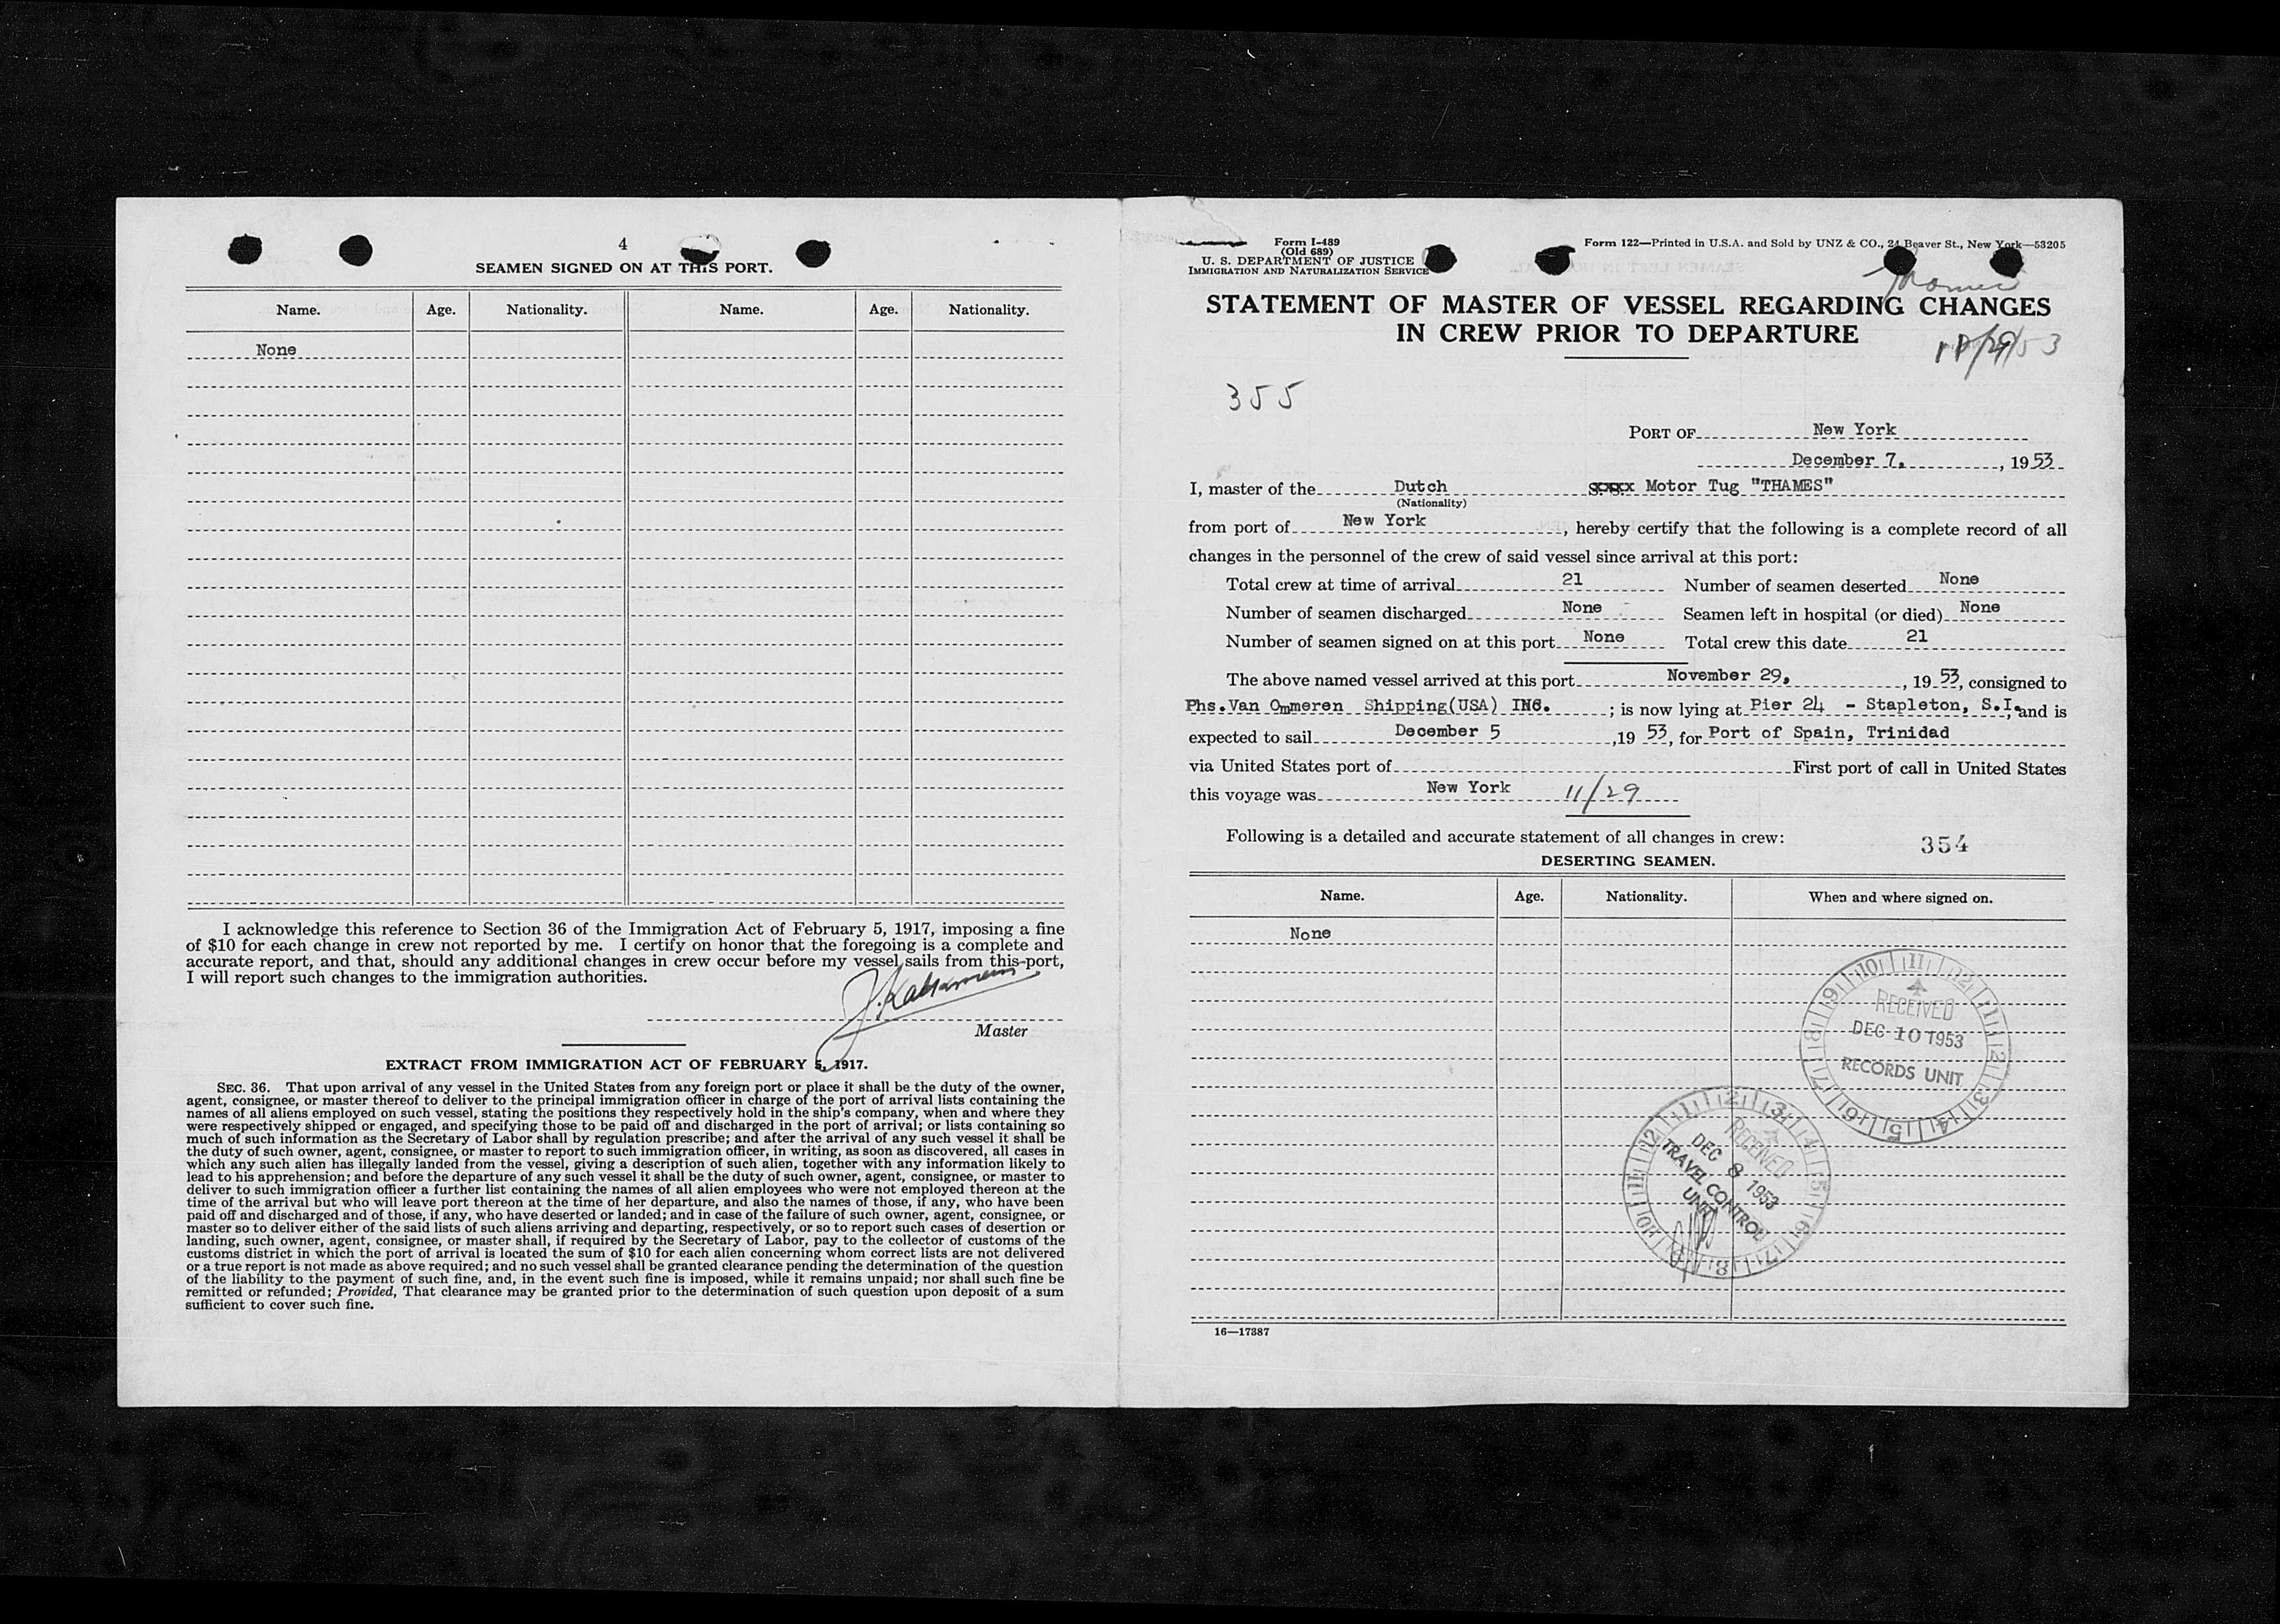 4
SEAMEN SIGNED ON AT THIS PORT.
Name. Age. Nationality. Name. Age. Nationality.
None
I acknowledge this reference to Section 36 of the Immigration Act of February 5, 1917, imposing a fine
of $10 for each change in crew not reported by me. I certify on honor that the foregoing is a complete and
accurate report, and that, should any additional changes in crew occur before my vessel sails from this port,
I will report such changes to the immigration authorities.
Master
EXTRACT FROM IMMIGRATION ACT OF FEBRUARY 5, 1917.
SEC. 36. That upon arrival of any vessel in the United States from any foreign port or place it shall be the duty of the owner,
agent, consignee, or master thereof to deliver to the principal immigration officer in charge of the port of arrival lists containing the
names of all aliens employed on such vessel, stating the positions they respectively hold in the ship's company, when and where they
were respectively shipped or engaged, and specifying those to be paid off and discharged in the port of arrival; or lists containing so
much of such information as the Secretary of Labor shall by regulation prescribe; and after the arrival of any such vessel it shall be
the duty of such owner, agent, consignee, or master to report to such immigration officer, in writing, as soon as discovered, all cases in
which any such alien has illegally landed from the vessel, giving a description of such alien, together with any information likely to
lead to his apprehension; and before the departure of any such vessel it shall be the duty of such owner, agent, consignee, or master to
deliver to such immigration officer a further list containing the names of all alien employees who were not employed thereon at the
time of the arrival but who will leave port thereon at the time of her departure, and also the names of those, if any, who have been
paid off and discharged and of those, if any, who have deserted or landed; and in case of the failure of such owner, agent, consignee, or
master so to deliver either of the said lists of such aliens arriving and departing, respectively, or so to report such cases of desertion or
landing, such owner, agent, consignee, or master shall, if required by the Secretary of Labor, pay to the collector of customs of the
customs district in which the port of arrival is located the sum of $10 for each alien concerning whom correct lists are not delivered
or a true report is not made as above required; and no such vessel shall be granted clearance pending the determination of the question
of the liability to the payment of such fine, and, in the event such fine is imposed, while it remains unpaid; nor shall such fine be
remitted or refunded; Provided, That clearance may be granted prior to the determination of such question upon deposit of a sum
sufficient to cover such fine.
Form I-489
(Old 689)
U. S. DEPARTMENT OF JUSTICE
IMMIGRATION AND NATURALIZATION SERVICE
Form 122—Printed in U.S.A. and Sold by UNZ & CO., 24 Beaver St., New York—53205
STATEMENT OF MASTER OF VESSEL REGARDING CHANGES
IN CREW PRIOR TO DEPARTURE
355
PORT OF New York
December 7, , 1953
I, master of the Dutch Motor Tug "THAMES"
(Nationality)
from port of New York , hereby certify that the following is a complete record of all
changes in the personnel of the crew of said vessel since arrival at this port:
Total crew at time of arrival 21 Number of seamen deserted None
Number of seamen discharged None Seamen left in hospital (or died) None
Number of seamen signed on at this port None Total crew this date 21
The above named vessel arrived at this port November 29, , 19 53, consigned to
Phs.Van Ommeren Shipping(USA) INC. ; is now lying at Pier 24 - Stapleton, S.I., and is
expected to sail December 5 ,19 53, for Port of Spain, Trinidad
via United States port of First port of call in United States
this voyage was New York 11/29
Following is a detailed and accurate statement of all changes in crew: 354
DESERTING SEAMEN.
Name. Age. Nationality. When and where signed on.
None
RECEIVED
DEC 10 1953
RECORDS UNIT
RECEIVED
DEC 8 1953
TRAVEL CONTROL
UNIT
16—17387